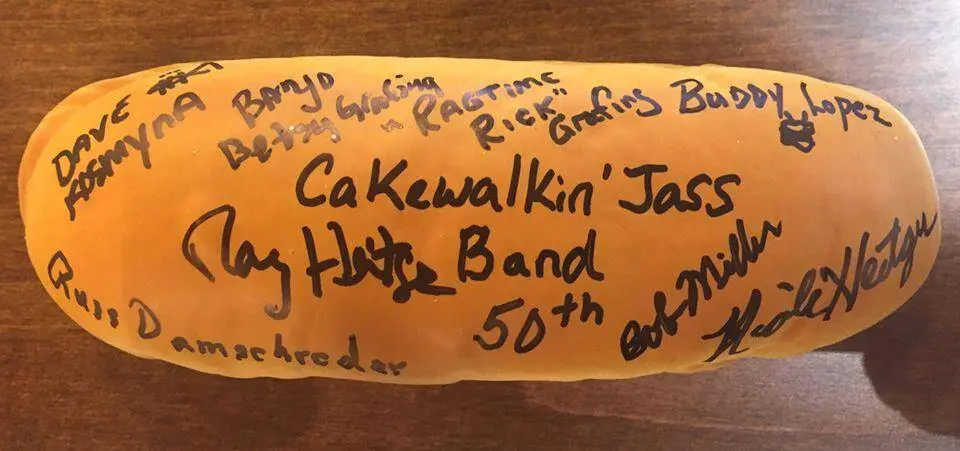 DAVE
KOSMYNA
BANJO
Betsy Grafing
"RAGTIME
RICK" Grafing
BUDDY Lopez
Cakewalkin' Jass
Ray Heitger Band
50th
Russ Damschroder
Bob Miller
Nicole Heitger